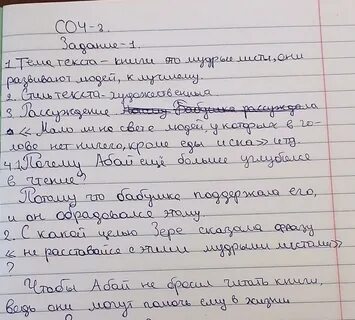 СОЧ-2.
Задание-1.
1. Тема текста - книги это мудрые листы, они
развивают людей, к лучшему.
2. Стиль текста - художественный
3. Рассуждение Бабушка рассуждала
"Мало ли на свете людей, у которых в го-
лове нет ничего, кроме еды и сна" итд.
4.1. Почему Абай ещё больше углубился
в чтение?
Потому что бабушка поддержала его,
и он обрадовался этому.
2. С какой целью Зере сказала фразу
«не расставайся с этими мудрыми листами»
?
Чтобы Абай не бросил читать книги,
ведь они могут помочь ему в жизни